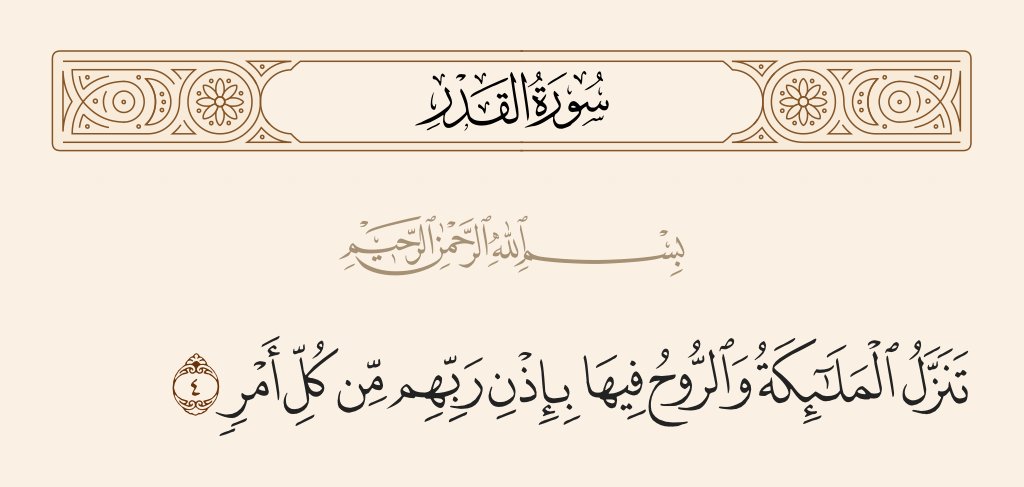 سُورَةُ القَدْرِ
بِسْمِ ٱللَّهِ ٱلرَّحْمَٰنِ ٱلرَّحِيمِ
تَنَزَّلُ ٱلْمَلَٰٓئِكَةُ وَٱلرُّوحُ فِيهَا بِإِذْنِ رَبِّهِم مِّن كُلِّ أَمْرٍ ٤